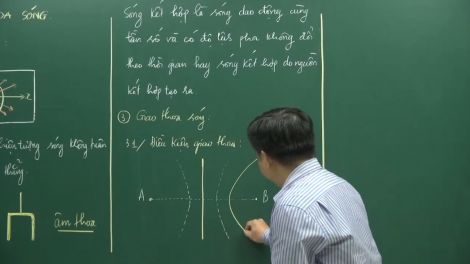 OA SÓNG.
x
hiện tượng sóng không tuân
thẳng.
âm thoa
Sóng kết hợp là sóng dao động cùng
tần số và có độ lệch pha không đổi
theo thời gian hay sóng kết hợp do nguồn
kết hợp tạo ra.
③ Giao thoa sóng:
3.1/ Điều kiện giao thoa:
A
B